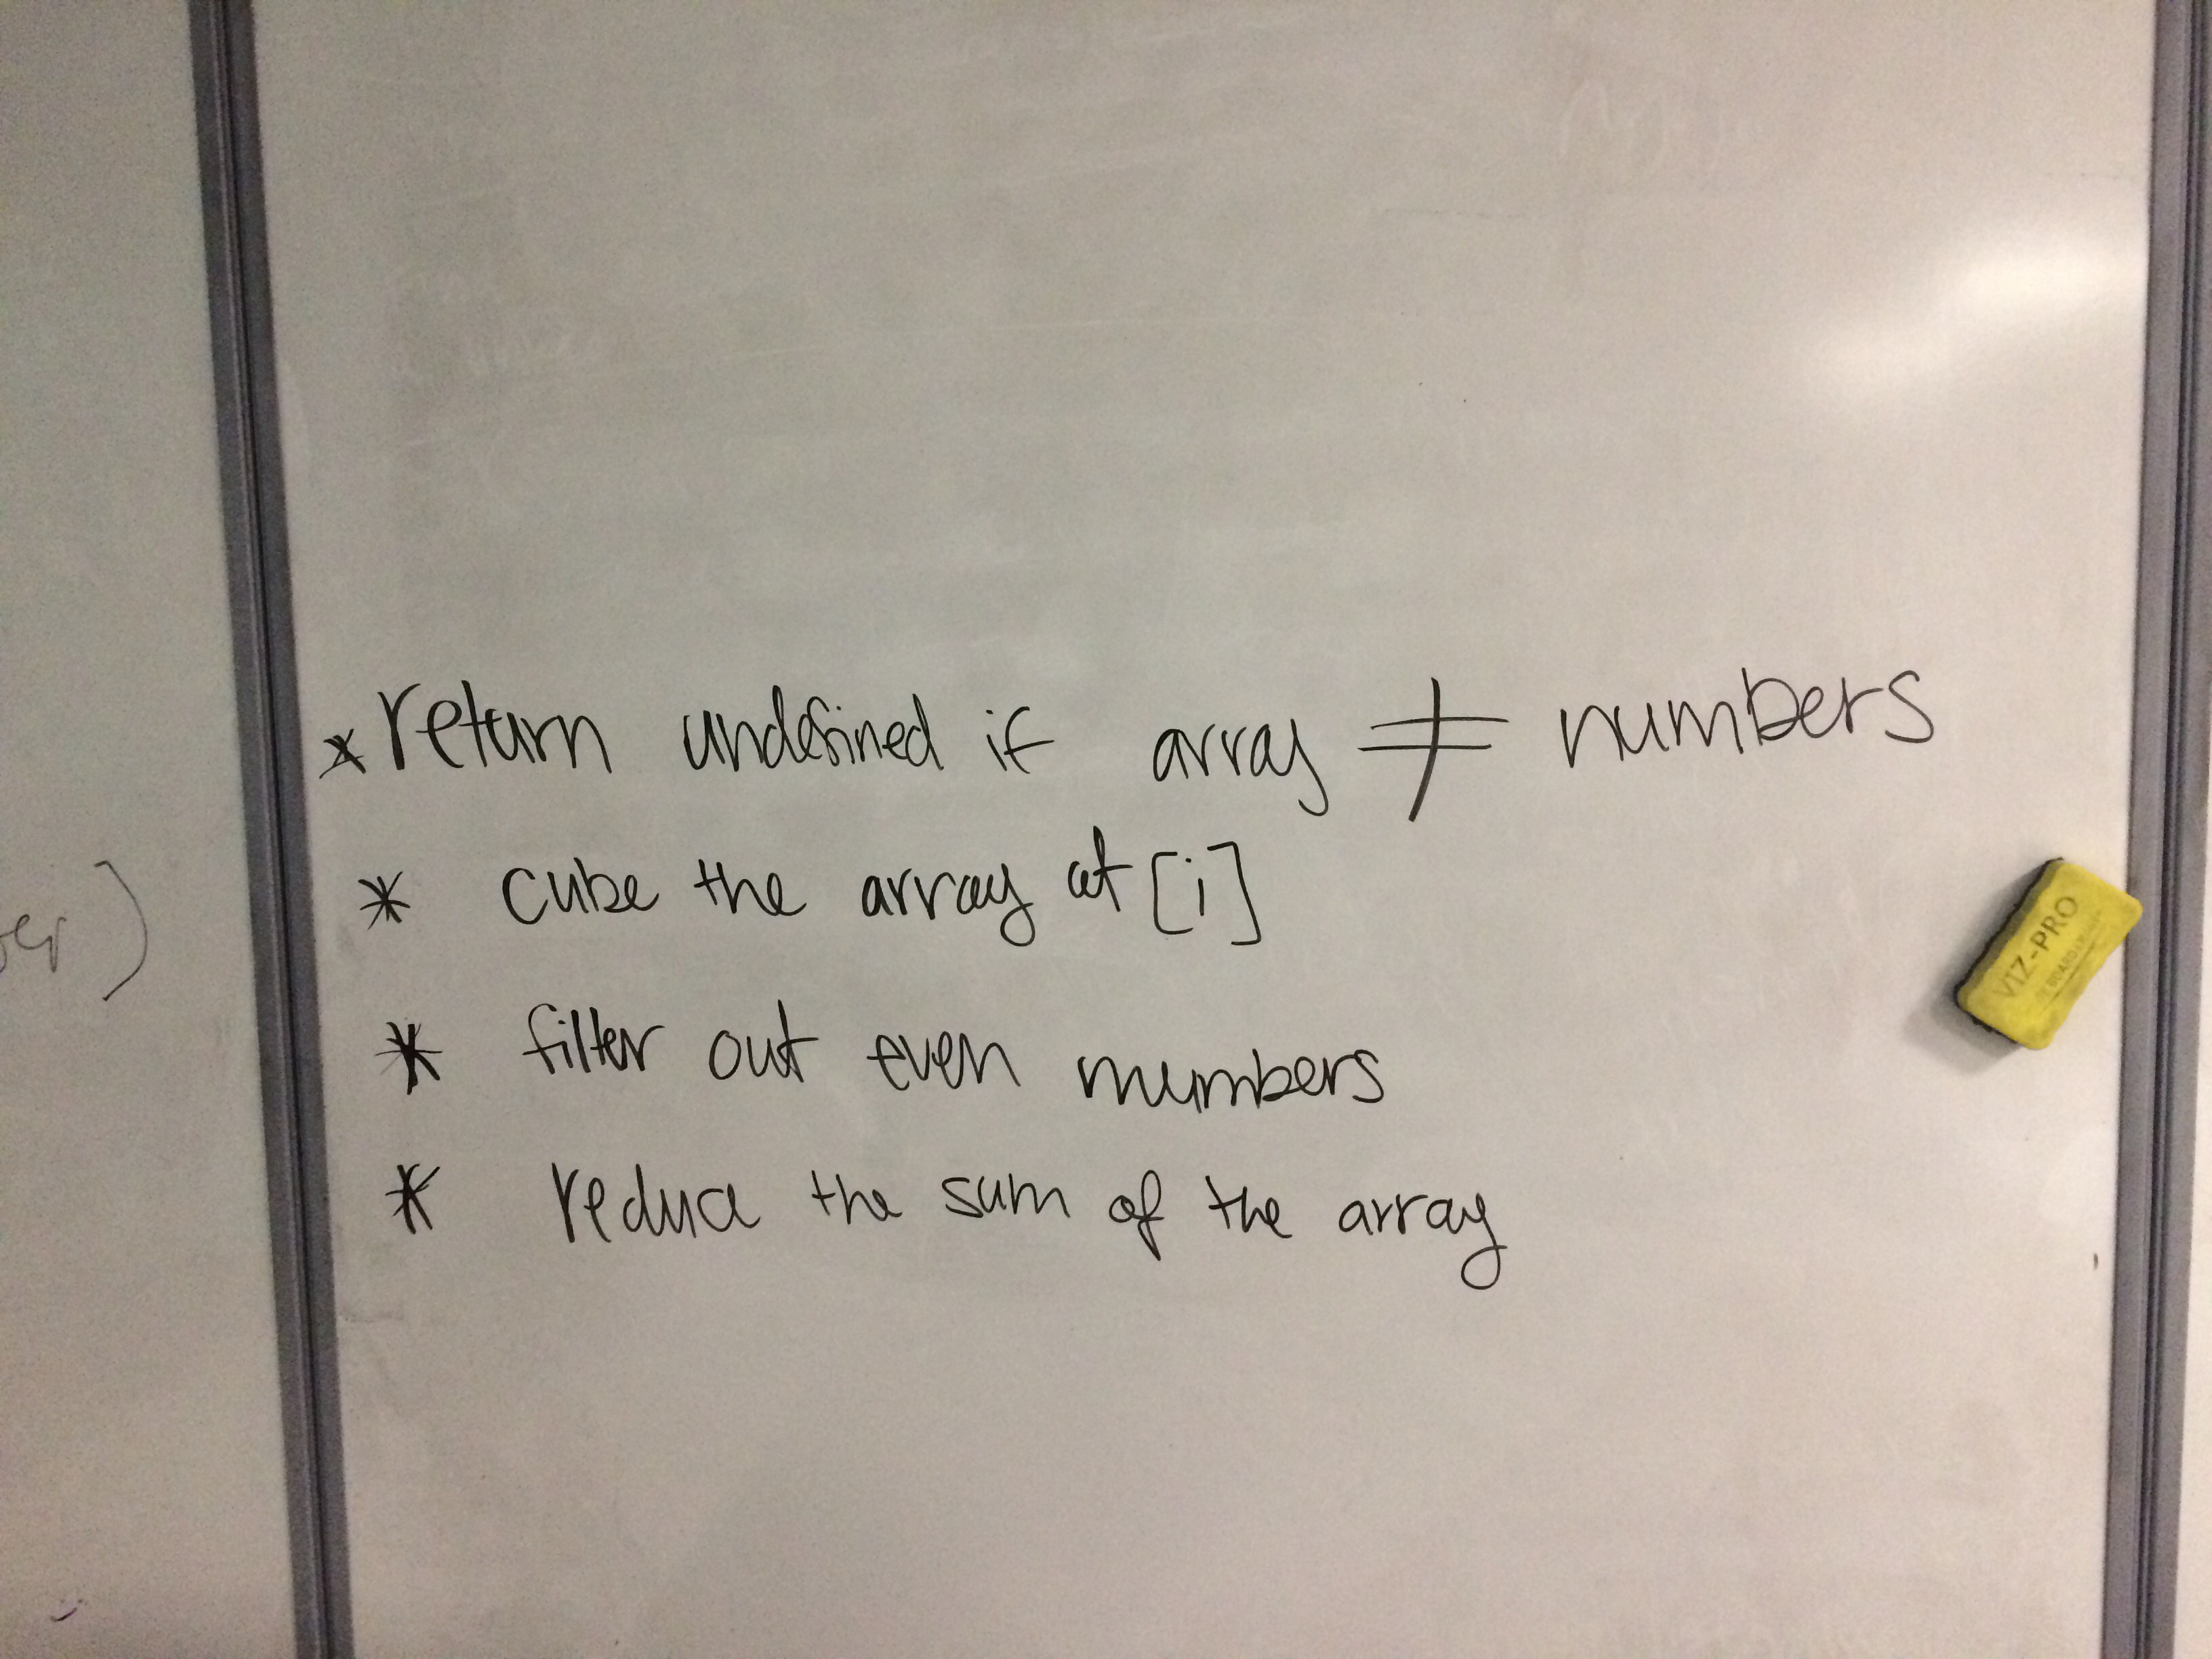 * return undefined if array ≠ numbers
* cube the array at [i]
* filter out even numbers
* reduce the sum of the array
VIZ-PRO